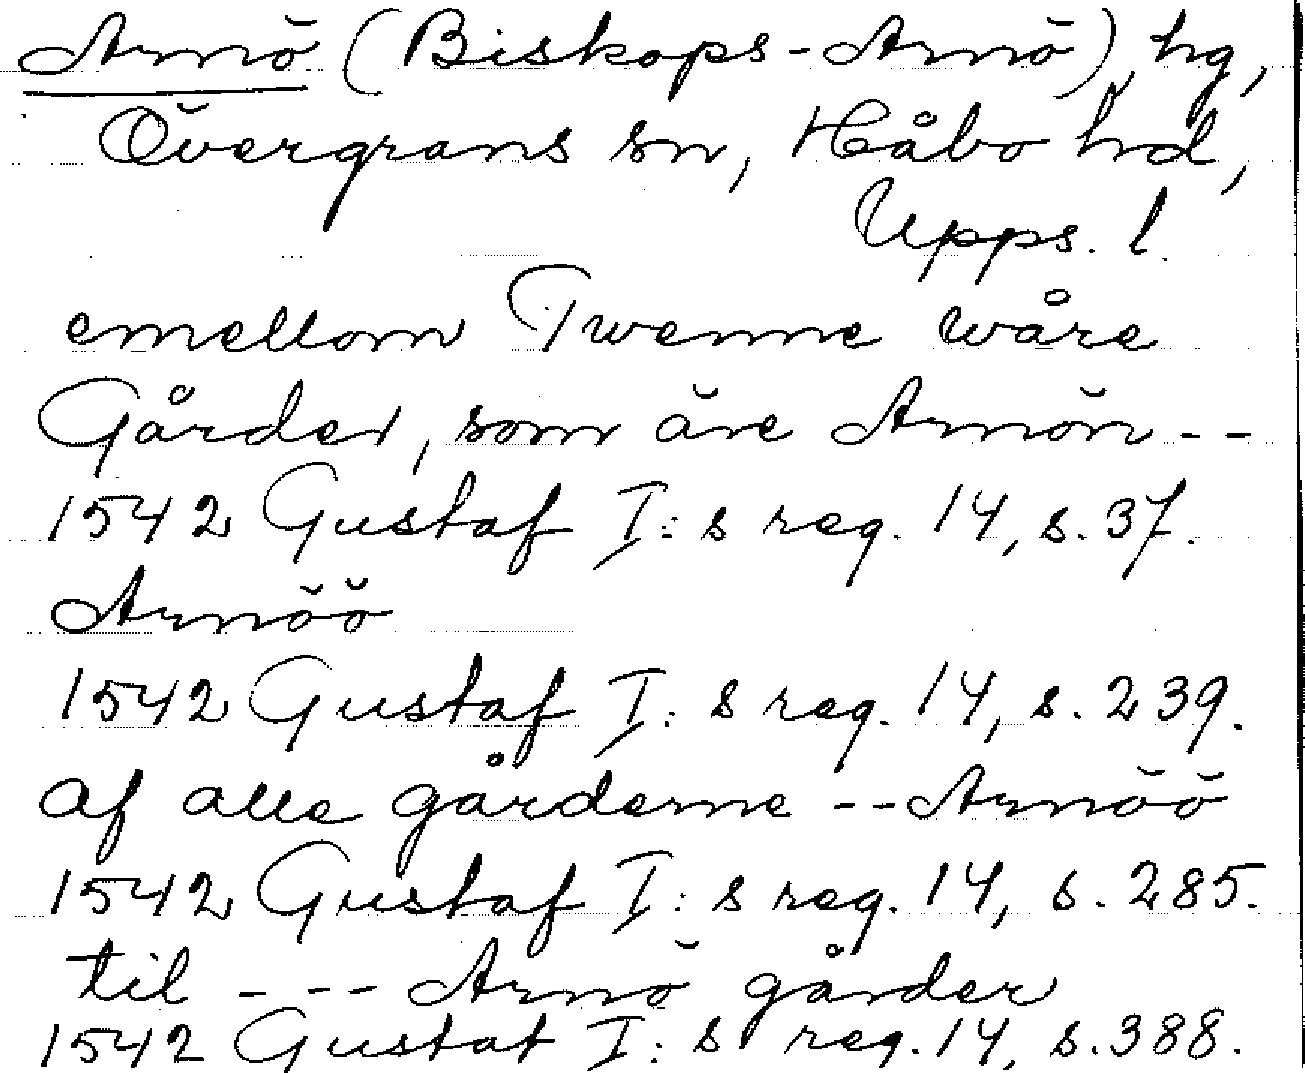 Arnö (Biskops-Arnö), hg,
Övergrans sn, Håbo hd,
Upps. l.
emellom Twenne wåre
Gårder, som äre Arnön--
1542 Gustaf I:s reg. 14, s. 37.
Arnöö
1542 Gustaf I:s reg. 14, s. 239.
af alle gårderne --Arnöö
1542 Gustaf I:s reg. 14, s. 285.
til --- Arnö gårder
1542 Gustaf I:s reg. 14, s. 388.